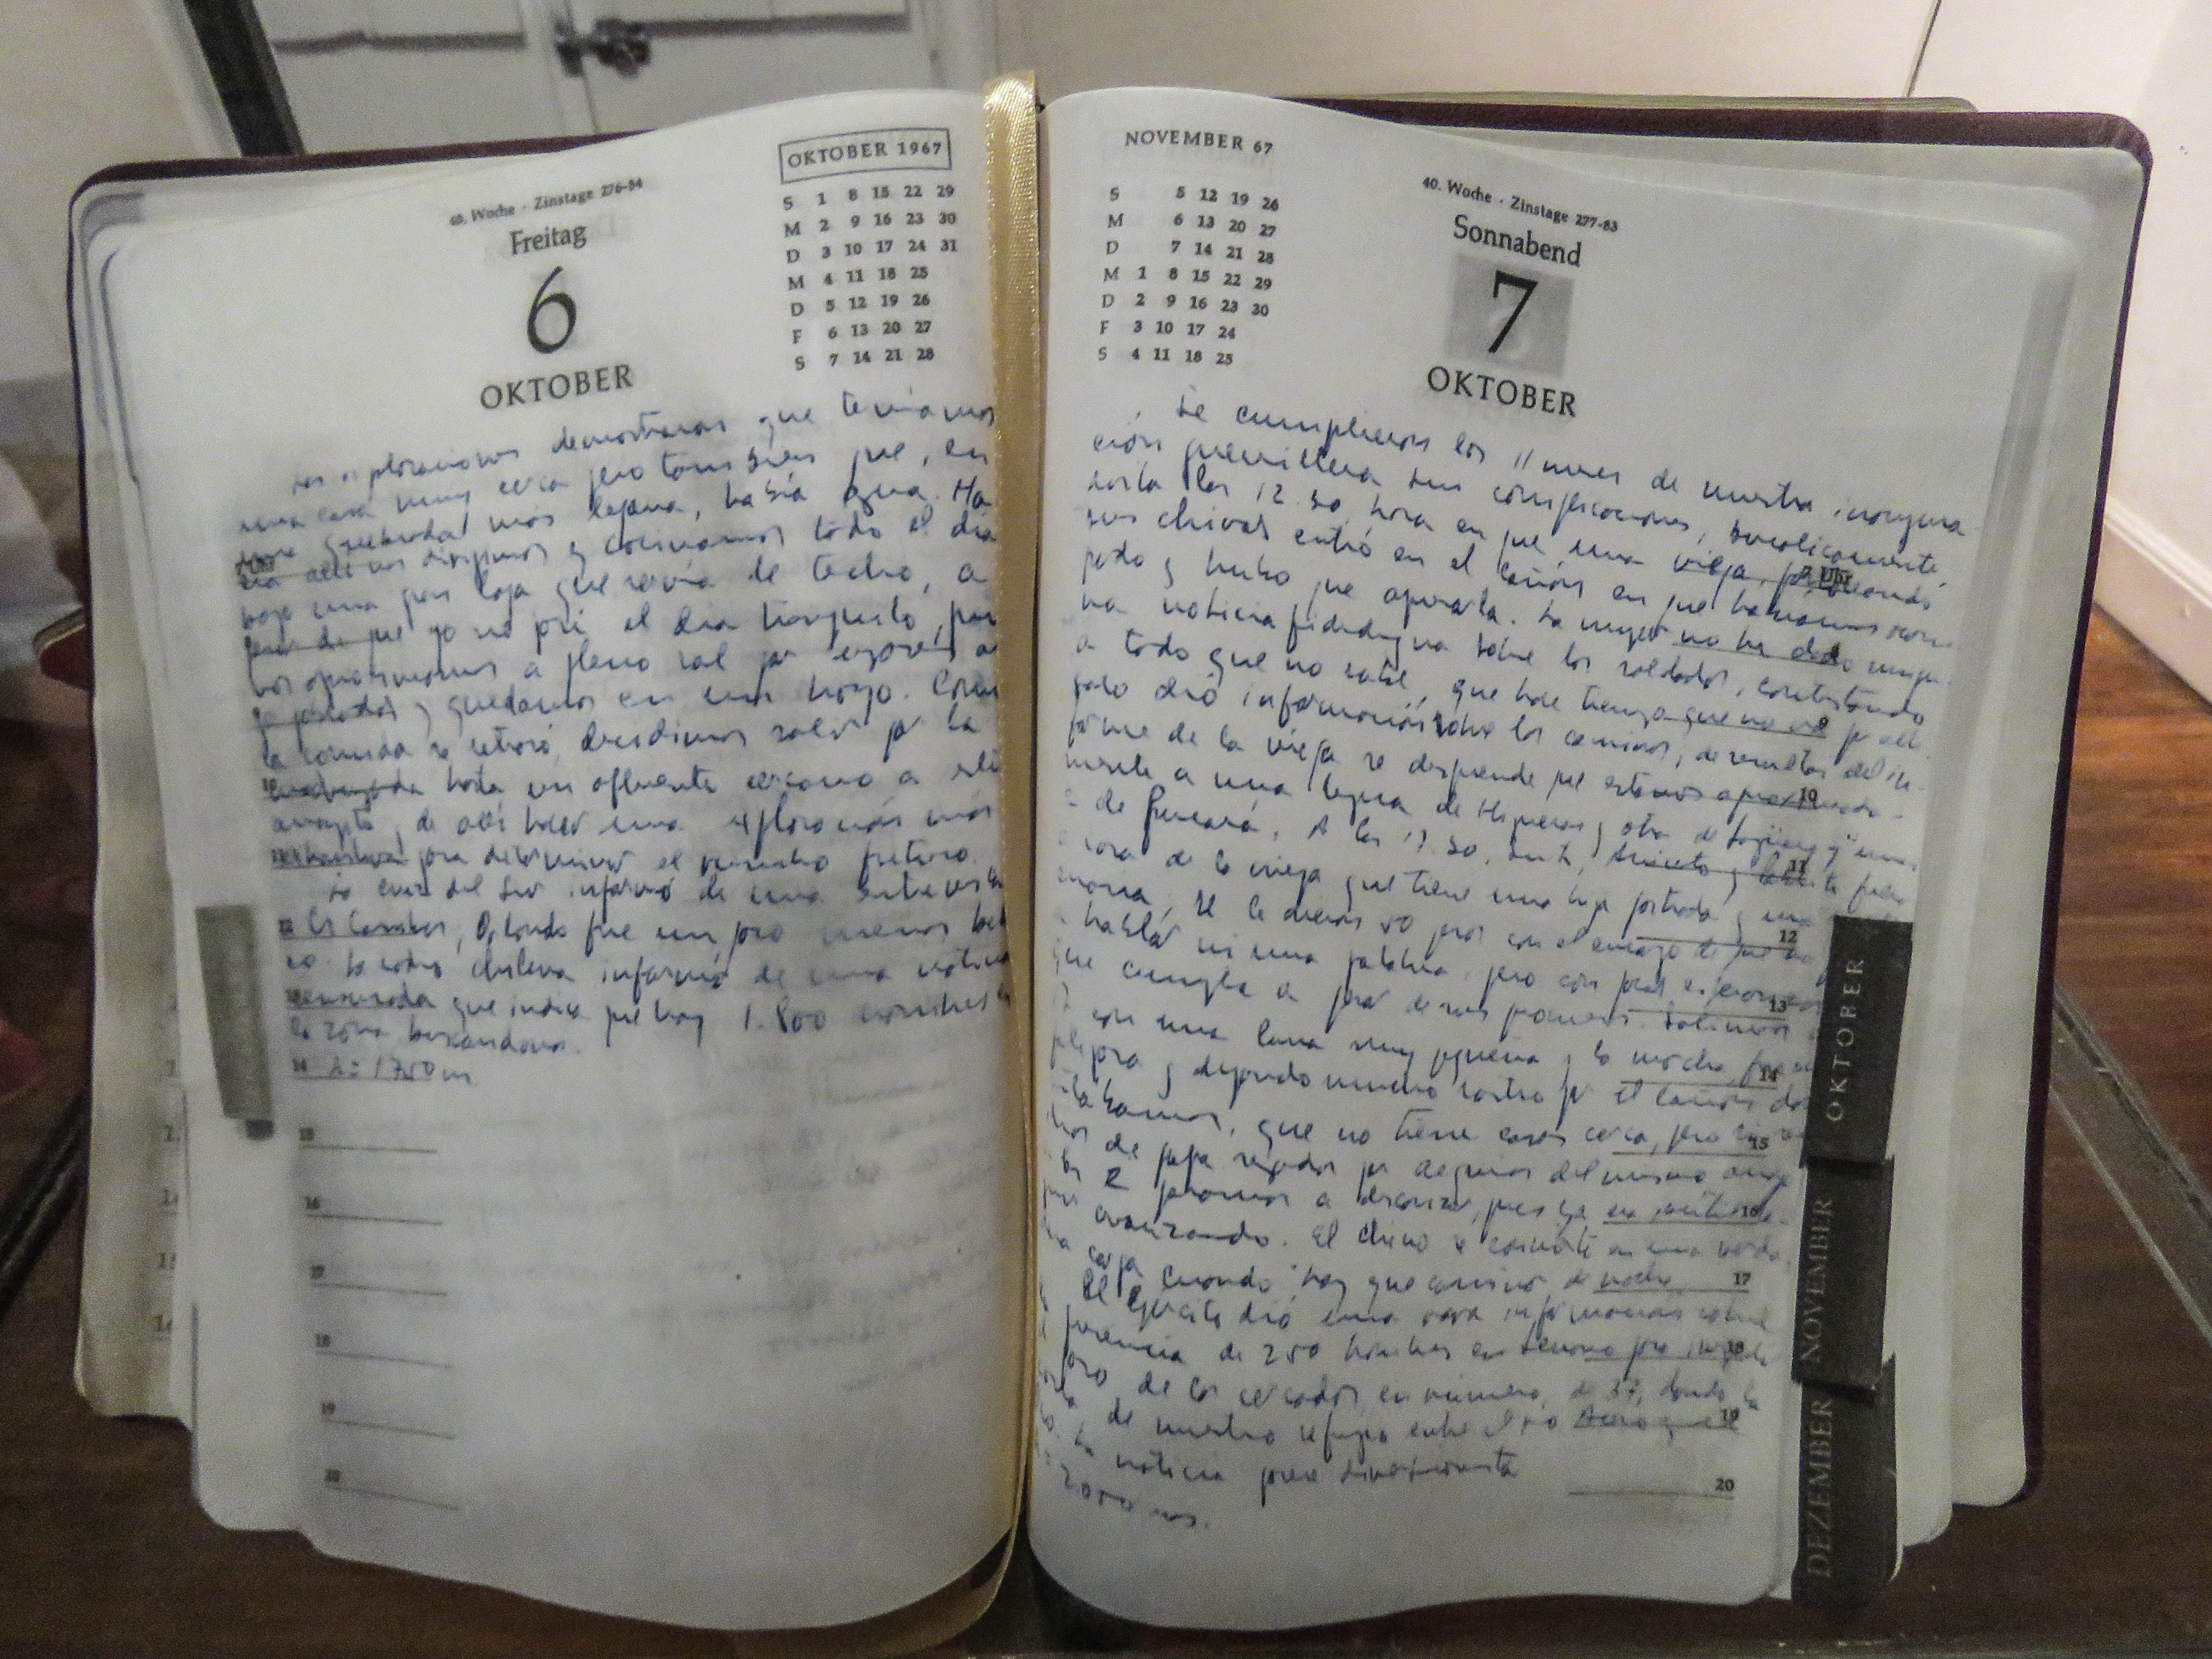 40. Woche - Zinstage 276-84
Freitag
6
OKTOBER
OKTOBER 1967
S 1 8 15 22 29
M 2 9 16 23 30
D 3 10 17 24 31
M 4 11 18 25
D 5 12 19 26
F 6 13 20 27
S 7 14 21 28
Las exploraciones demostraron que teníamos
una casa muy cerca pero también que, en
una quebrada más lejana, había agua. Ha
cia allí nos dirigimos y cocinamos todo el día
bajo una gran laja que servía de techo, a
pesar de que yo no pasé el día tranquilo, pues
nos aproximamos a pleno sol por lugares a
y quedamos en un hoyo. Como
la comida se retrasó, decidimos salir por la
madrugada hasta un afluente cercano a este
y de allí hacer una exploración más
exhaustiva para determinar el rumbo futuro.
La cruz del Sur informó de una entrevista
a los Cambas, Orlando fue un poco menos bella
co. La radio chilena informó de una noticia
censurada que indica que hay 1.800 hombres en
la zona buscándonos.
h = 1750 m
15
16
17
18
19
20
NOVEMBER 67
S 5 12 19 26
M 6 13 20 27
D 7 14 21 28
M 1 8 15 22 29
D 2 9 16 23 30
F 3 10 17 24
S 4 11 18 25
40. Woche - Zinstage 277-83
Sonnabend
7
OKTOBER
Se cumplieron los 11 meses de nuestra inaugura
ción guerrillera sin complicaciones, bucólicamente,
hasta las 12.30, hora en que una vieja, pastoreando
sus chivas entró en el cañón en que habíamos acam
pado y hubo que apresarla. La mujer no ha dado ningu
na noticia fidedigna sobre los soldados, contestando
a todo que no sabe, que hace tiempo que no va por allí
solo dió información sobre los caminos, de resultas del in
forme de la vieja se desprende que estamos aproximada
mente a una legua de Higueras y otra de Jagüey y unas
2 de Pucará. A las 17.30, Inti, Aniceto y Pablito fueron
a casa de la vieja que tiene una hija postrada y una
enana. Se le dieron 50 pesos con el encargo de que no
hablar ni una palabra, pero con pocas esperanzas
que cumpla a pesar de sus promesas. Salimos
17 con una luna muy pequeña y la marcha fue
peligrosa y dejando mucho rastro por el cañón do
estábamos, que no tiene casas cerca, pero
de papa regados por acequias del mismo arroyo
A las 2 paramos a descansar, pues ya era inútil seguir
avanzando. El Chino se convierte en una verda
dera carga cuando hay que caminar de noche
El Ejército dió una rara información sobre
presencia de 250 hombres en Serrano para impedir
paso de los cercados en número de 37, dando la
de nuestro refugio entre el río Acero y el
La noticia parece diversionista
2.000 ms.
10
11
12
13
14
15
16
17
18
19
20
OKTOBER
NOVEMBER
DEZEMBER